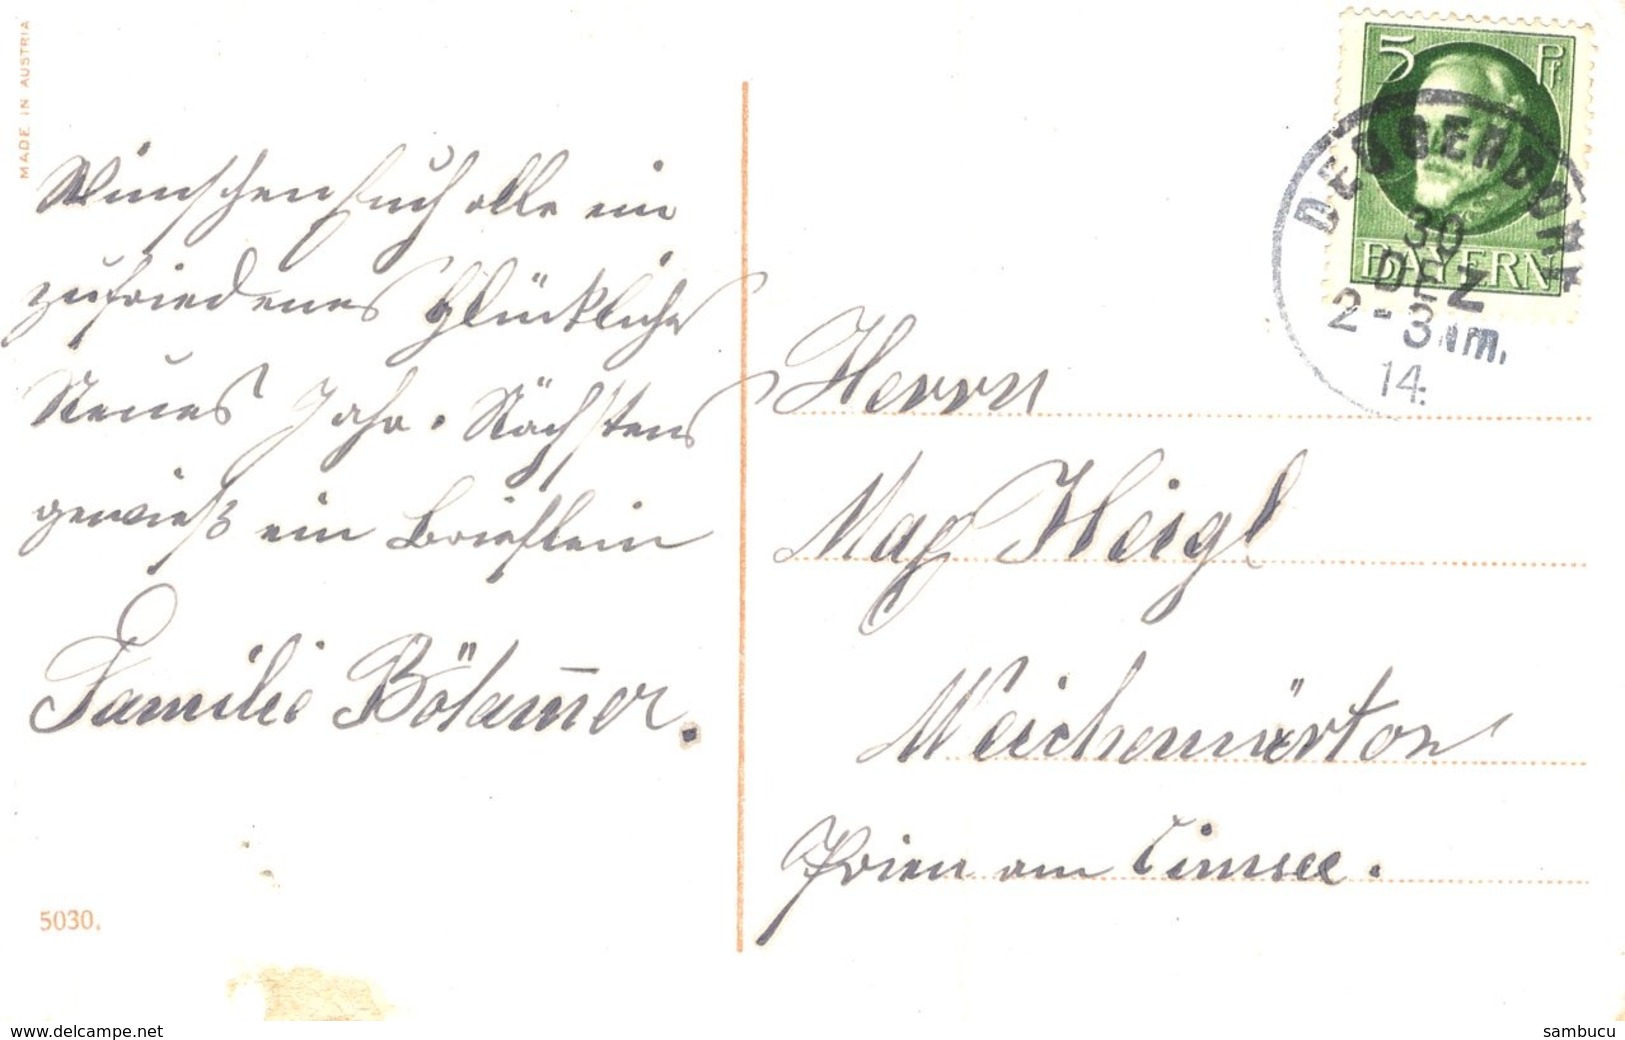 MADE IN AUSTRIA
Wünschen Euch alle ein
zufriedenes Glückliches
Neues Jahr. Nächstens
gewieß ein Brieflein
Familie
5030.
5 Pf.
BAYERN
DEGGENDORF
30
DEZ
2-3 Nm.
14.
Herrn
Heigl
Prien am Cimsee.
www.delcampe.net
sambucu